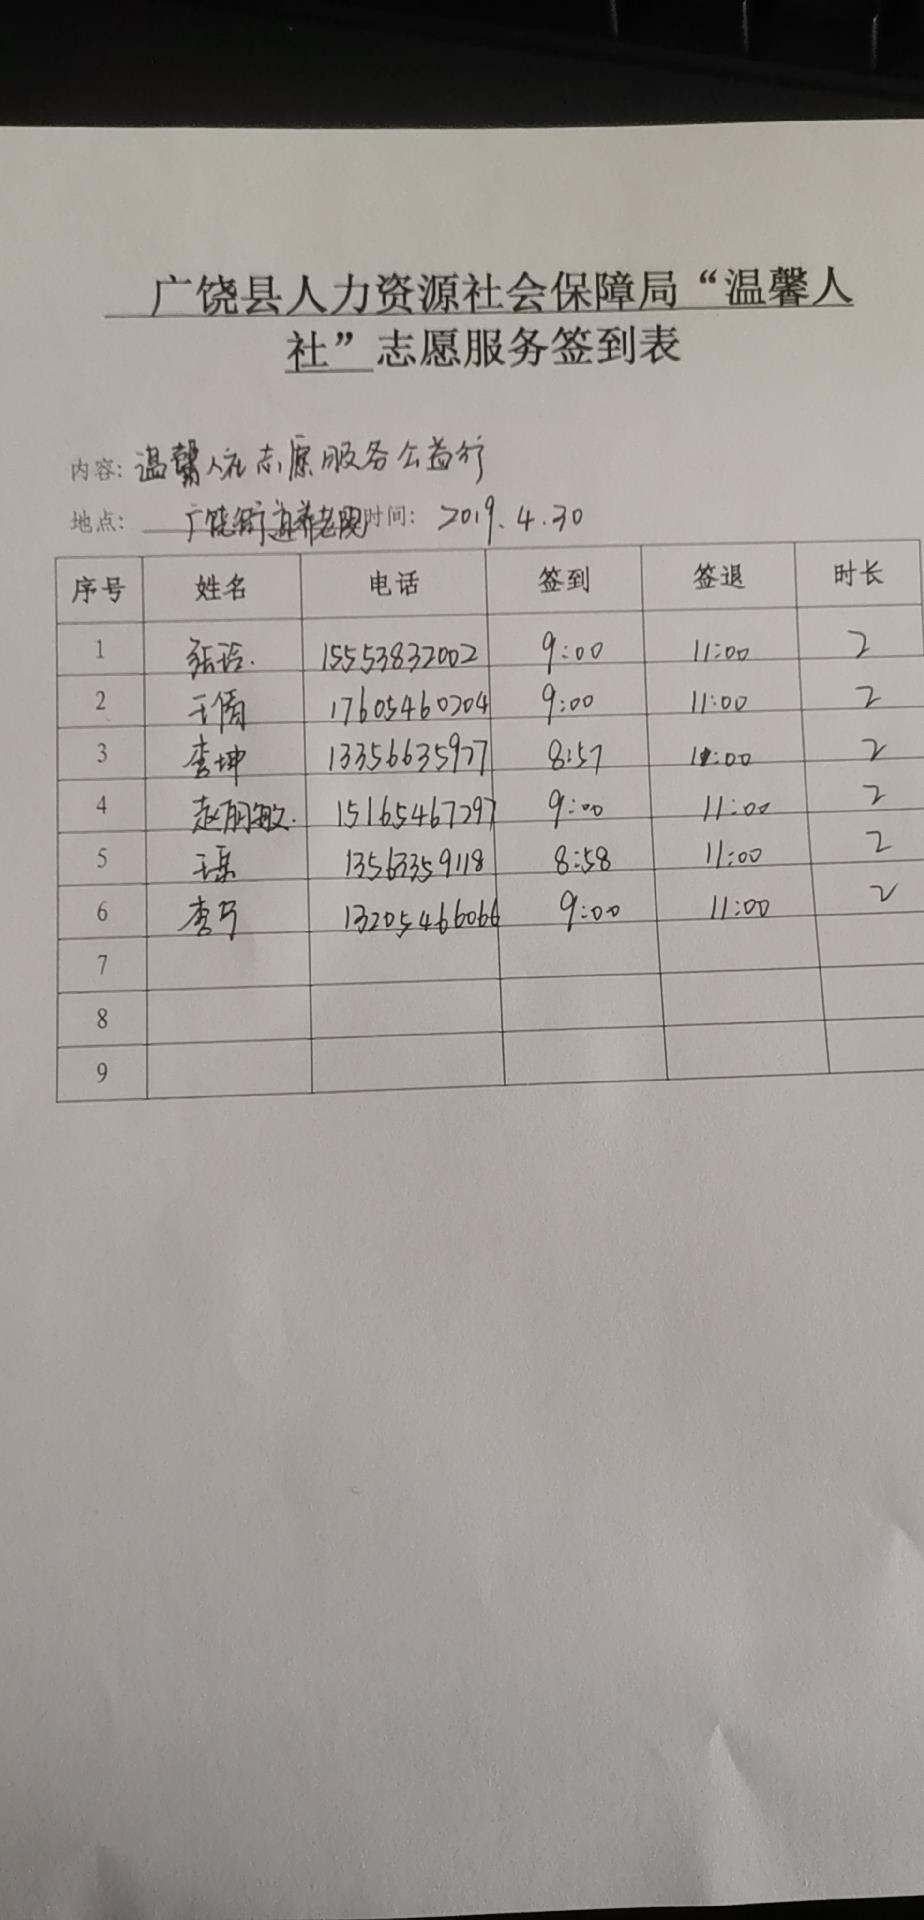 广饶县人力资源社会保障局“温馨人
社”志愿服务签到表
内容: 温馨人社志愿服务公益行
地点: 广饶街道养老院 时间: 2019.4.30
序号 姓名 电话 签到 签退 时长
1 张玲. 15553832002 9:00 11:00 2
2 王倩 17605460204 9:00 11:00 2
3 李坤 13356635977 8:57 11:00 2
4 赵丽敏. 15165467297 9:00 11:00 2
5 王乐 13563359118 8:58 11:00 2
6 李 13205466066 9:00 11:00 2
7
8
9